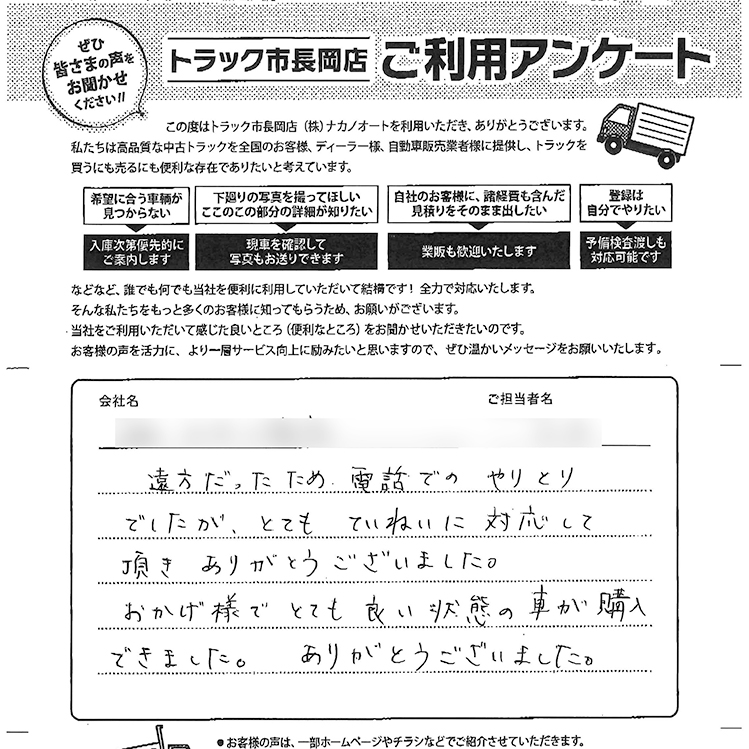 ぜひ
皆さまの声を
お聞かせ
ください!!
トラック市長岡店 ご利用アンケート
この度はトラック市長岡店（株）ナカノオートを利用いただき、ありがとうございます。
私たちは高品質な中古トラックを全国のお客様、ディーラー様、自動車販売業者様に提供し、トラックを
買うにも売るにも便利な存在でありたいと考えています。
希望に合う車輌が
見つからない
入庫次第優先的に
ご案内します
下廻りの写真を撮ってほしい
ここのこの部分の詳細が知りたい
現車を確認して
写真もお送りできます
自社のお客様に、諸経費も含んだ
見積りをそのまま出したい
業販も歓迎いたします
登録は
自分でやりたい
予備検査渡しも
対応可能です
などなど、誰でも何でも当社を便利に利用していただいて結構です！全力で対応いたします。
そんな私たちをもっと多くのお客様に知ってもらうため、お願いがございます。
当社をご利用いただいて感じた良いところ（便利なところ）をお聞かせいただきたいのです。
お客様の声を活力に、より一層サービス向上に励みたいと思いますので、ぜひ温かいメッセージをお願いいたします。
会社名 ご担当者名
遠方だったため 電話での やりとり
でしたが、とても ていねいに 対応して
頂き ありがとうございました。
おかげ様で とても 良い 状態の 車が 購入
できました。 ありがとうございました。
●お客様の声は、一部ホームページやチラシなどでご紹介させていただきます。